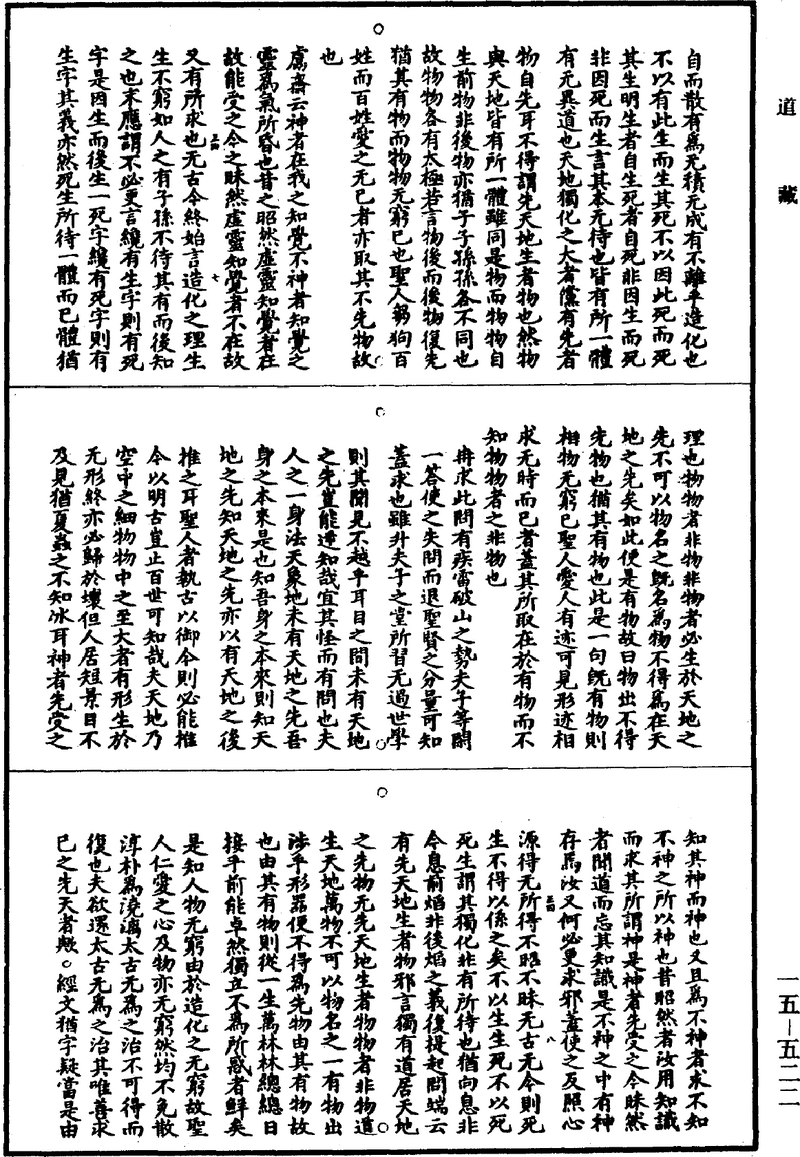 道藏
自而散有為无積无成有不離乎造化也
不以有此生而生其死不以因此死而死
其生明生者自生死者自死非因生而死
非因死而生言其本无待也皆有所一體
有无異道也天地獨化之大者儻有先者
物自先耳不得謂先天地生者物也然物
與天地皆有所一體雖同是物而物物自
生前物非後物亦猶子子孫孫各不同也
故物物各有太極若言物後而後物復先
猶其有物而物物无窮已也聖人芻狗百
姓而百姓愛之无已者亦取其不先物故
也
鬳齋云神者在我之知覺不神者知覺之
靈為氣所昏也昔之昭然虛靈知覺者在
故能受之今之昧然虛靈知覺者不在故
又有所求也无古今終始言造化之理生
生不窮如人之有子孫不待其有而後知
之也末應謂不必更言纔有生字則有死
字是因生而後生一死字纔有死字則有
生字其義亦然死生所待一體而已體猶
理也物物者非物非物者必生於天地之
先不可以物名之既名為物不得為在天
地之先矣如此便是有物故曰物出不得
先物也猶其有物也此是一句既有物則
相物无窮已聖人愛人有迹可見形迹相
求无時而已者蓋其所取在於有物而不
知物物者之非物也
冉求此問有疾雷破山之勢夫子等閑
一答使之失問而退聖賢之分量可知
蓋求也雖升夫子之堂所習无過世學
則其聞見不越乎耳目之間未有天地
之先豈能逆知哉宜其怪而有問也夫
人之一身法天象地未有天地之先吾
身之本來是也知吾身之本來則知天
地之先知天地之先亦以有天地之後
推之耳聖人者執古以御今則必能推
今以明古豈止百世可知哉夫天地乃
空中之細物物中之至大者有形生於
无形終亦必歸於壞但人居短景目不
及見猶夏蟲之不知冰耳神者先受之
知其神而神也又且為不神者求不知
不神之所以神也昔昭然者汝用知識
而求其所謂神是神者先受之今昧然
者聞道而忘其知識是不神之中有神
存焉汝又何必更求邪蓋使之反照心
源得无所得不昭不昧无古无今則死
生不得以係之矣不以生生死不以死
死生謂其獨化非有所待也猶向息非
今息前焰非後焰之義後提起問端云
有先天地生者物邪言獨有道居天地
之先物无先天地生者物物者非物道
生天地萬物不可以物名之一有物出
涉乎形器便不得為先物由其有物故
也由其有物則從一生萬林林總總日
接乎前能卓然獨立不為所惑者鮮矣
是知人物无窮由於造化之无窮故聖
人仁愛之心及物亦无窮然均不免散
淳朴為澆漓太古无為之治不可得而
復也夫欲還太古无為之治其唯善求
已之先天者歟○經文猶字疑當是由
一五—五二二